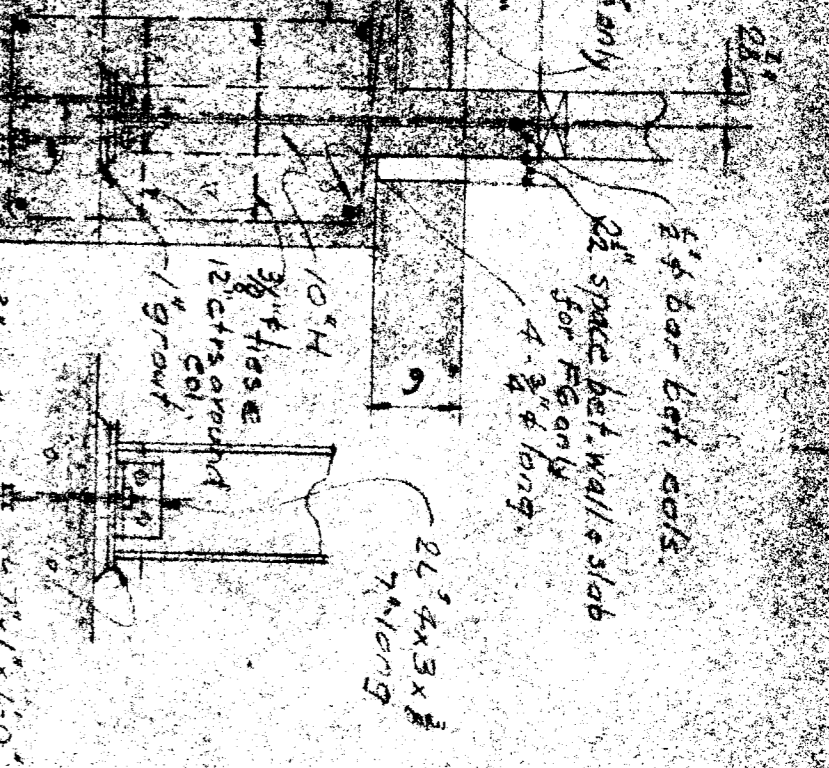 s only
2⅞"
½"ϕ bar bet. cols.
2½" space bet. wall & slab
for F6 only
4-¾"ϕ long.
9
10" H
⅜"ϕ ties @
12"ctrs around
col.
1" grout
2Ls 4x3x⅜
7" long
7"x1"x1'-0"